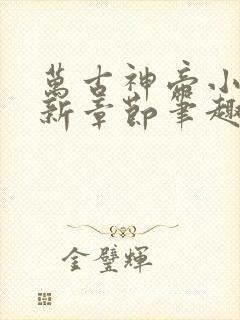 萬古神帝小
新章節筆趣
金璧輝